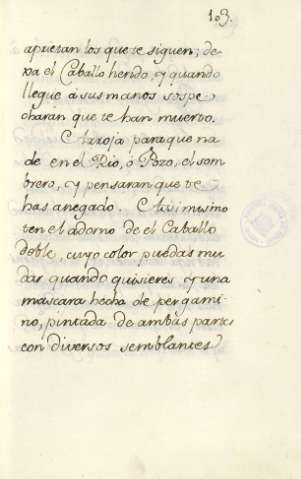 103.
apuetan los que te siguen; de-
xa el Caballo hendo, y quando
llegue á sus manos sospe
charán que te han muerto.
Arroja para que na
de en el Rio, ó Pozo, el som
brero, y pensaran que te
has anegado. Asi mismo
ten el adorno de el Caballo
doble, cuyo color puedas mu
das quando quisieres y una
mascara hecha de pergami-
no, pintada de ambas partes
con diversos semblantes